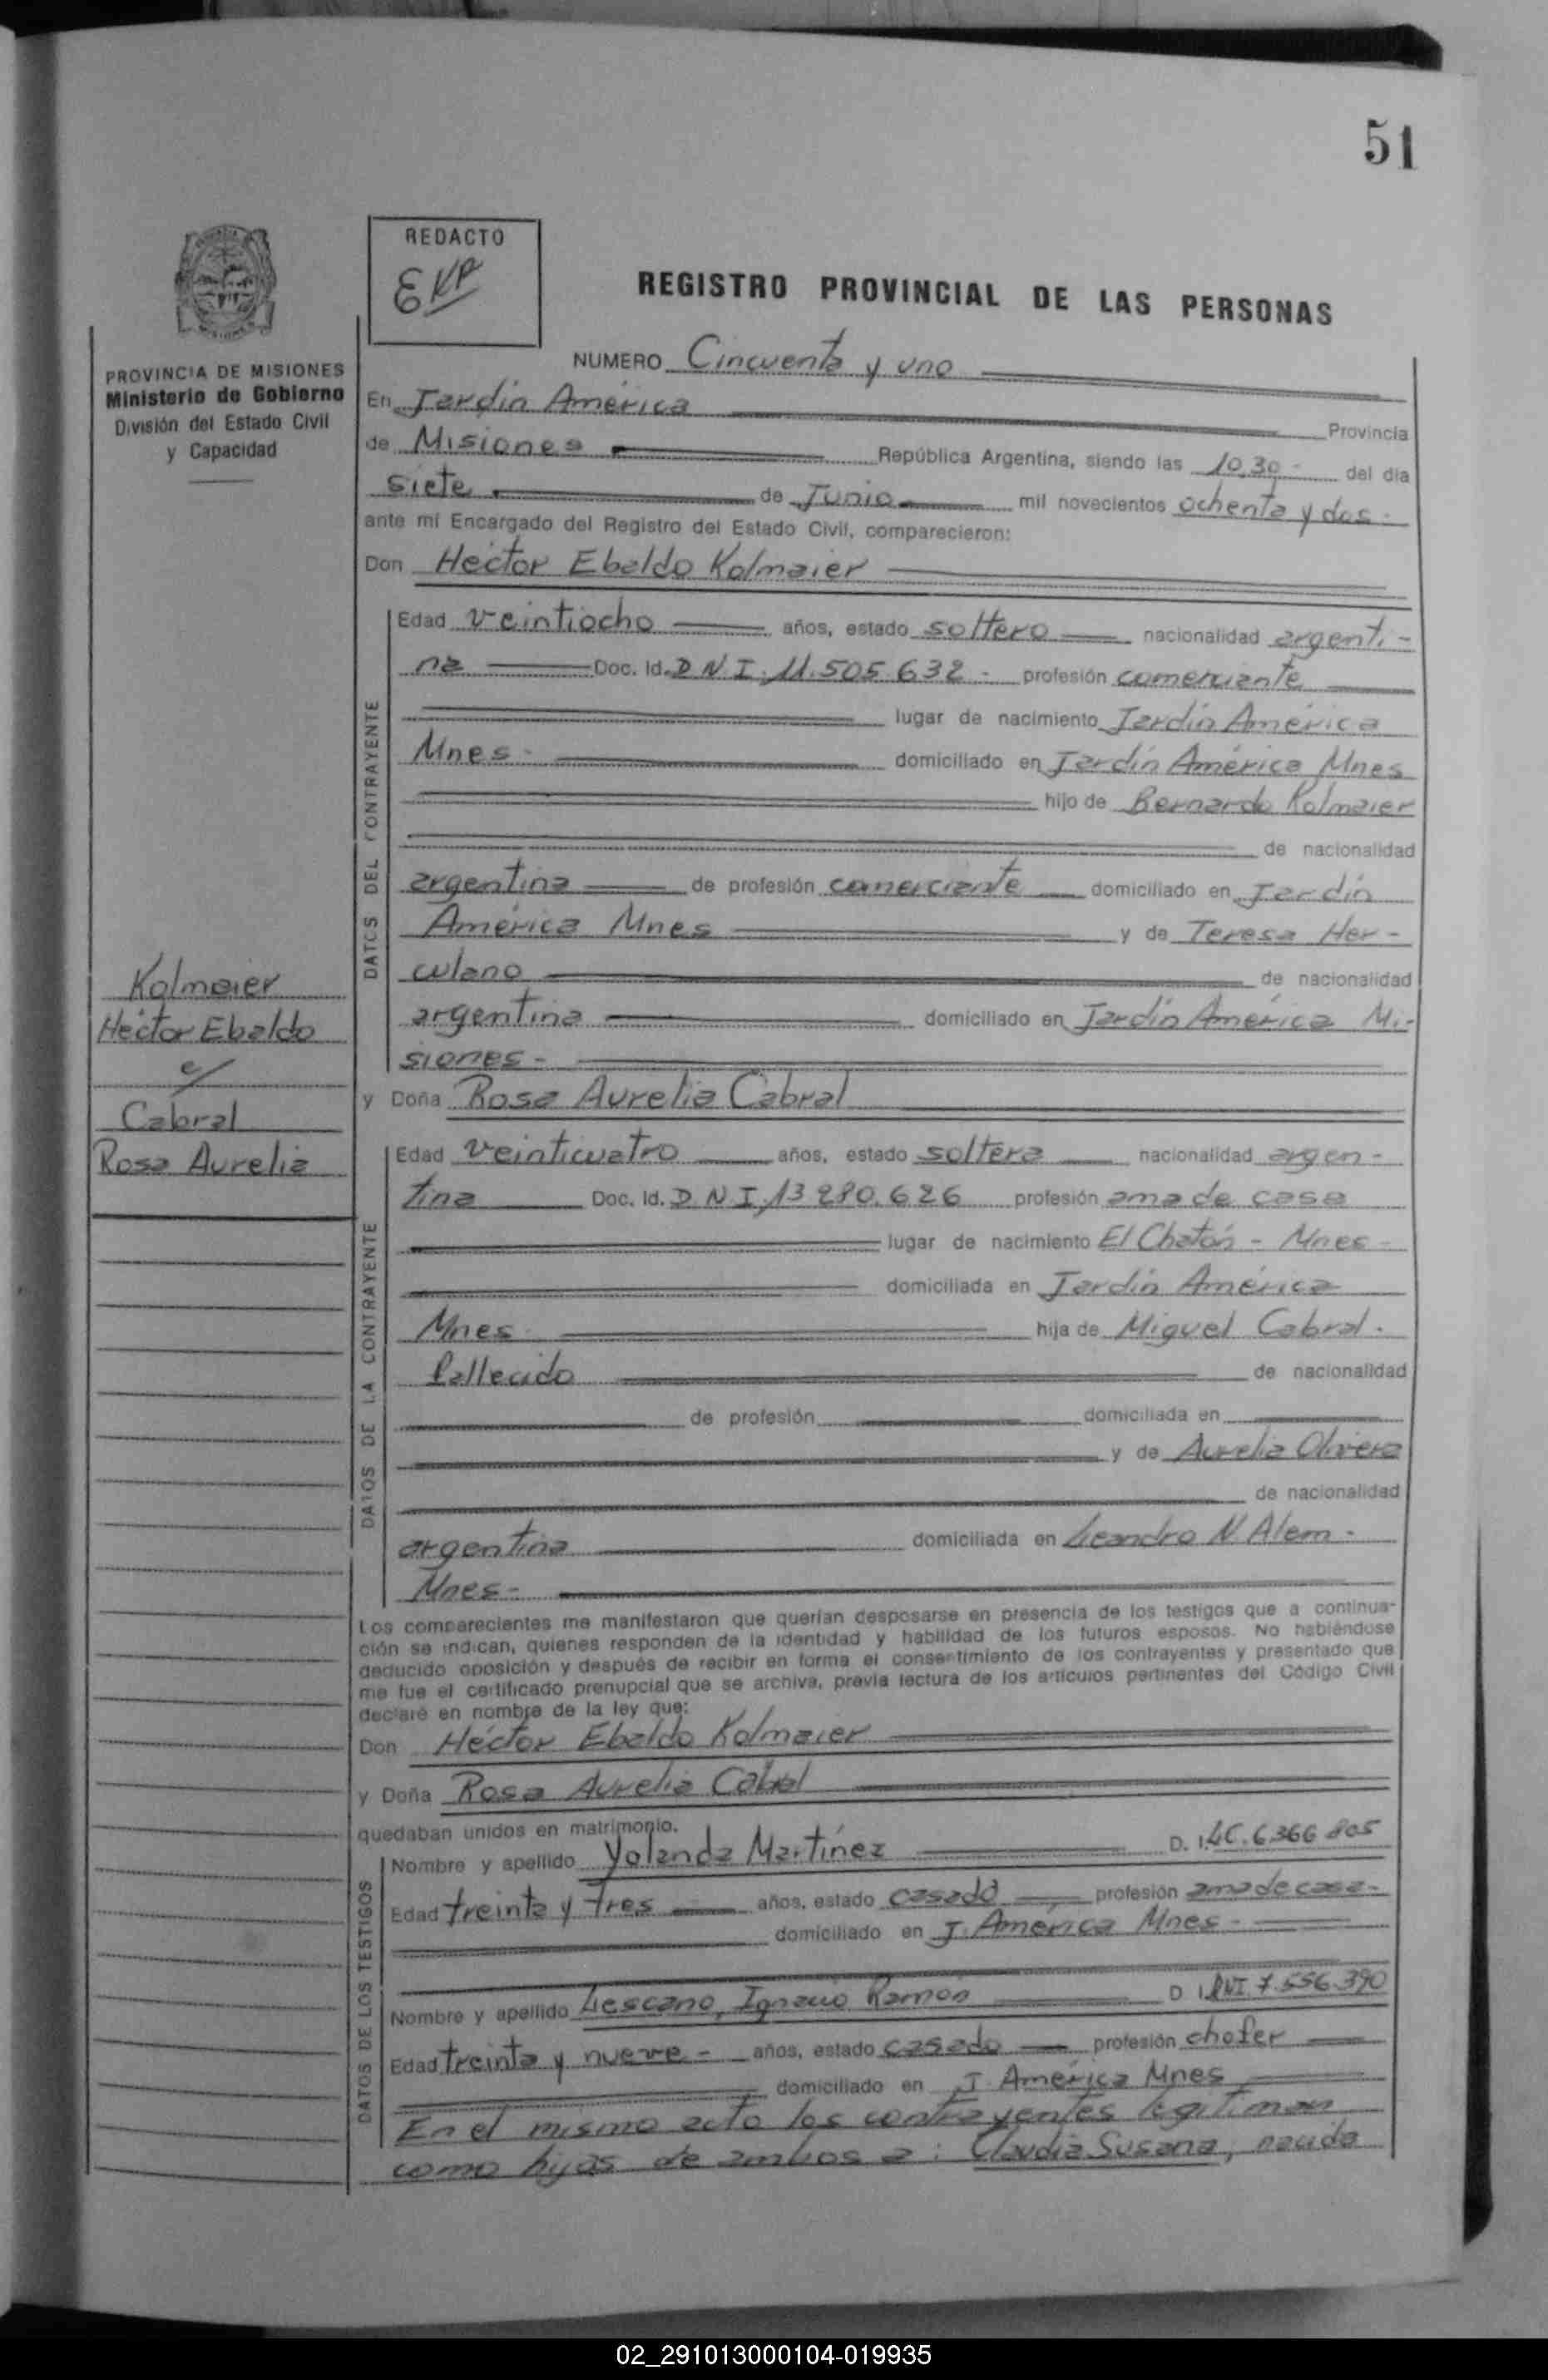 51
REDACTO
EKA
REGISTRO PROVINCIAL DE LAS PERSONAS
PROVINCIA DE MISIONES
Ministerio de Gobierno
División del Estado Civil
y Capacidad
NUMERO Cincuenta y uno
En Jardín América Provincia
de Misiones República Argentina, siendo las 10,30 - del día
siete de Junio mil novecientos ochenta y dos -
ante mí Encargado del Registro del Estado Civil, comparecieron:
Don Héctor Ebaldo Kolmaier
DATOS DEL CONTRAYENTE
Edad veintiocho años, estado soltero nacionalidad argenti-
na Doc. Id. D.N.I. 11.505.632 - profesión comerciante
lugar de nacimiento Jardín América
Mnes - domiciliado en Jardín América Mnes
hijo de Bernardo Kolmaier
de nacionalidad
argentina de profesión comerciante domiciliado en Jardín
América Mnes y de Teresa Her-
culano de nacionalidad
argentina domiciliado en Jardín América Mi-
siones -
Kolmaier
Héctor Ebaldo
c/
Cabral
Rosa Aurelia
y Doña Rosa Aurelia Cabral
DATOS DE LA CONTRAYENTE
Edad veinticuatro años, estado soltera nacionalidad argen-
tina Doc. Id. D.N.I. 13.280.626 profesión ama de casa
lugar de nacimiento El Chatón - Mnes -
domiciliada en Jardín América
Mnes hija de Miguel Cabral.
fallecido de nacionalidad
de profesión domiciliada en
y de Aurelia Olivera
de nacionalidad
argentina domiciliada en Leandro N. Alem -
Mnes -
Los comparecientes me manifestaron que querían desposarse en presencia de los testigos que a continua-
ción se indican, quienes responden de la identidad y habilidad de los futuros esposos. No habiéndose
deducido oposición y después de recibir en forma el consentimiento de los contrayentes y presentado que
me fue el certificado prenupcial que se archiva, previa lectura de los artículos pertinentes del Código Civil
declaré en nombre de la ley que:
Don Héctor Ebaldo Kolmaier
y Doña Rosa Aurelia Cabral
quedaban unidos en matrimonio.
DATOS DE LOS TESTIGOS
Nombre y apellido Yolanda Martínez D. I. LC. 6.366 805
Edad treinta y tres años, estado casada profesión ama de casa -
domiciliado en J. América Mnes -
Nombre y apellido Lescano, Ignacio Ramón D I. DNI 7.556.390
Edad treinta y nueve - años, estado casado profesión chofer
domiciliado en J. América Mnes
En el mismo acto los contrayentes legitiman
como hijas de ambos a : Claudia Susana, nacida
02_291013000104-019935